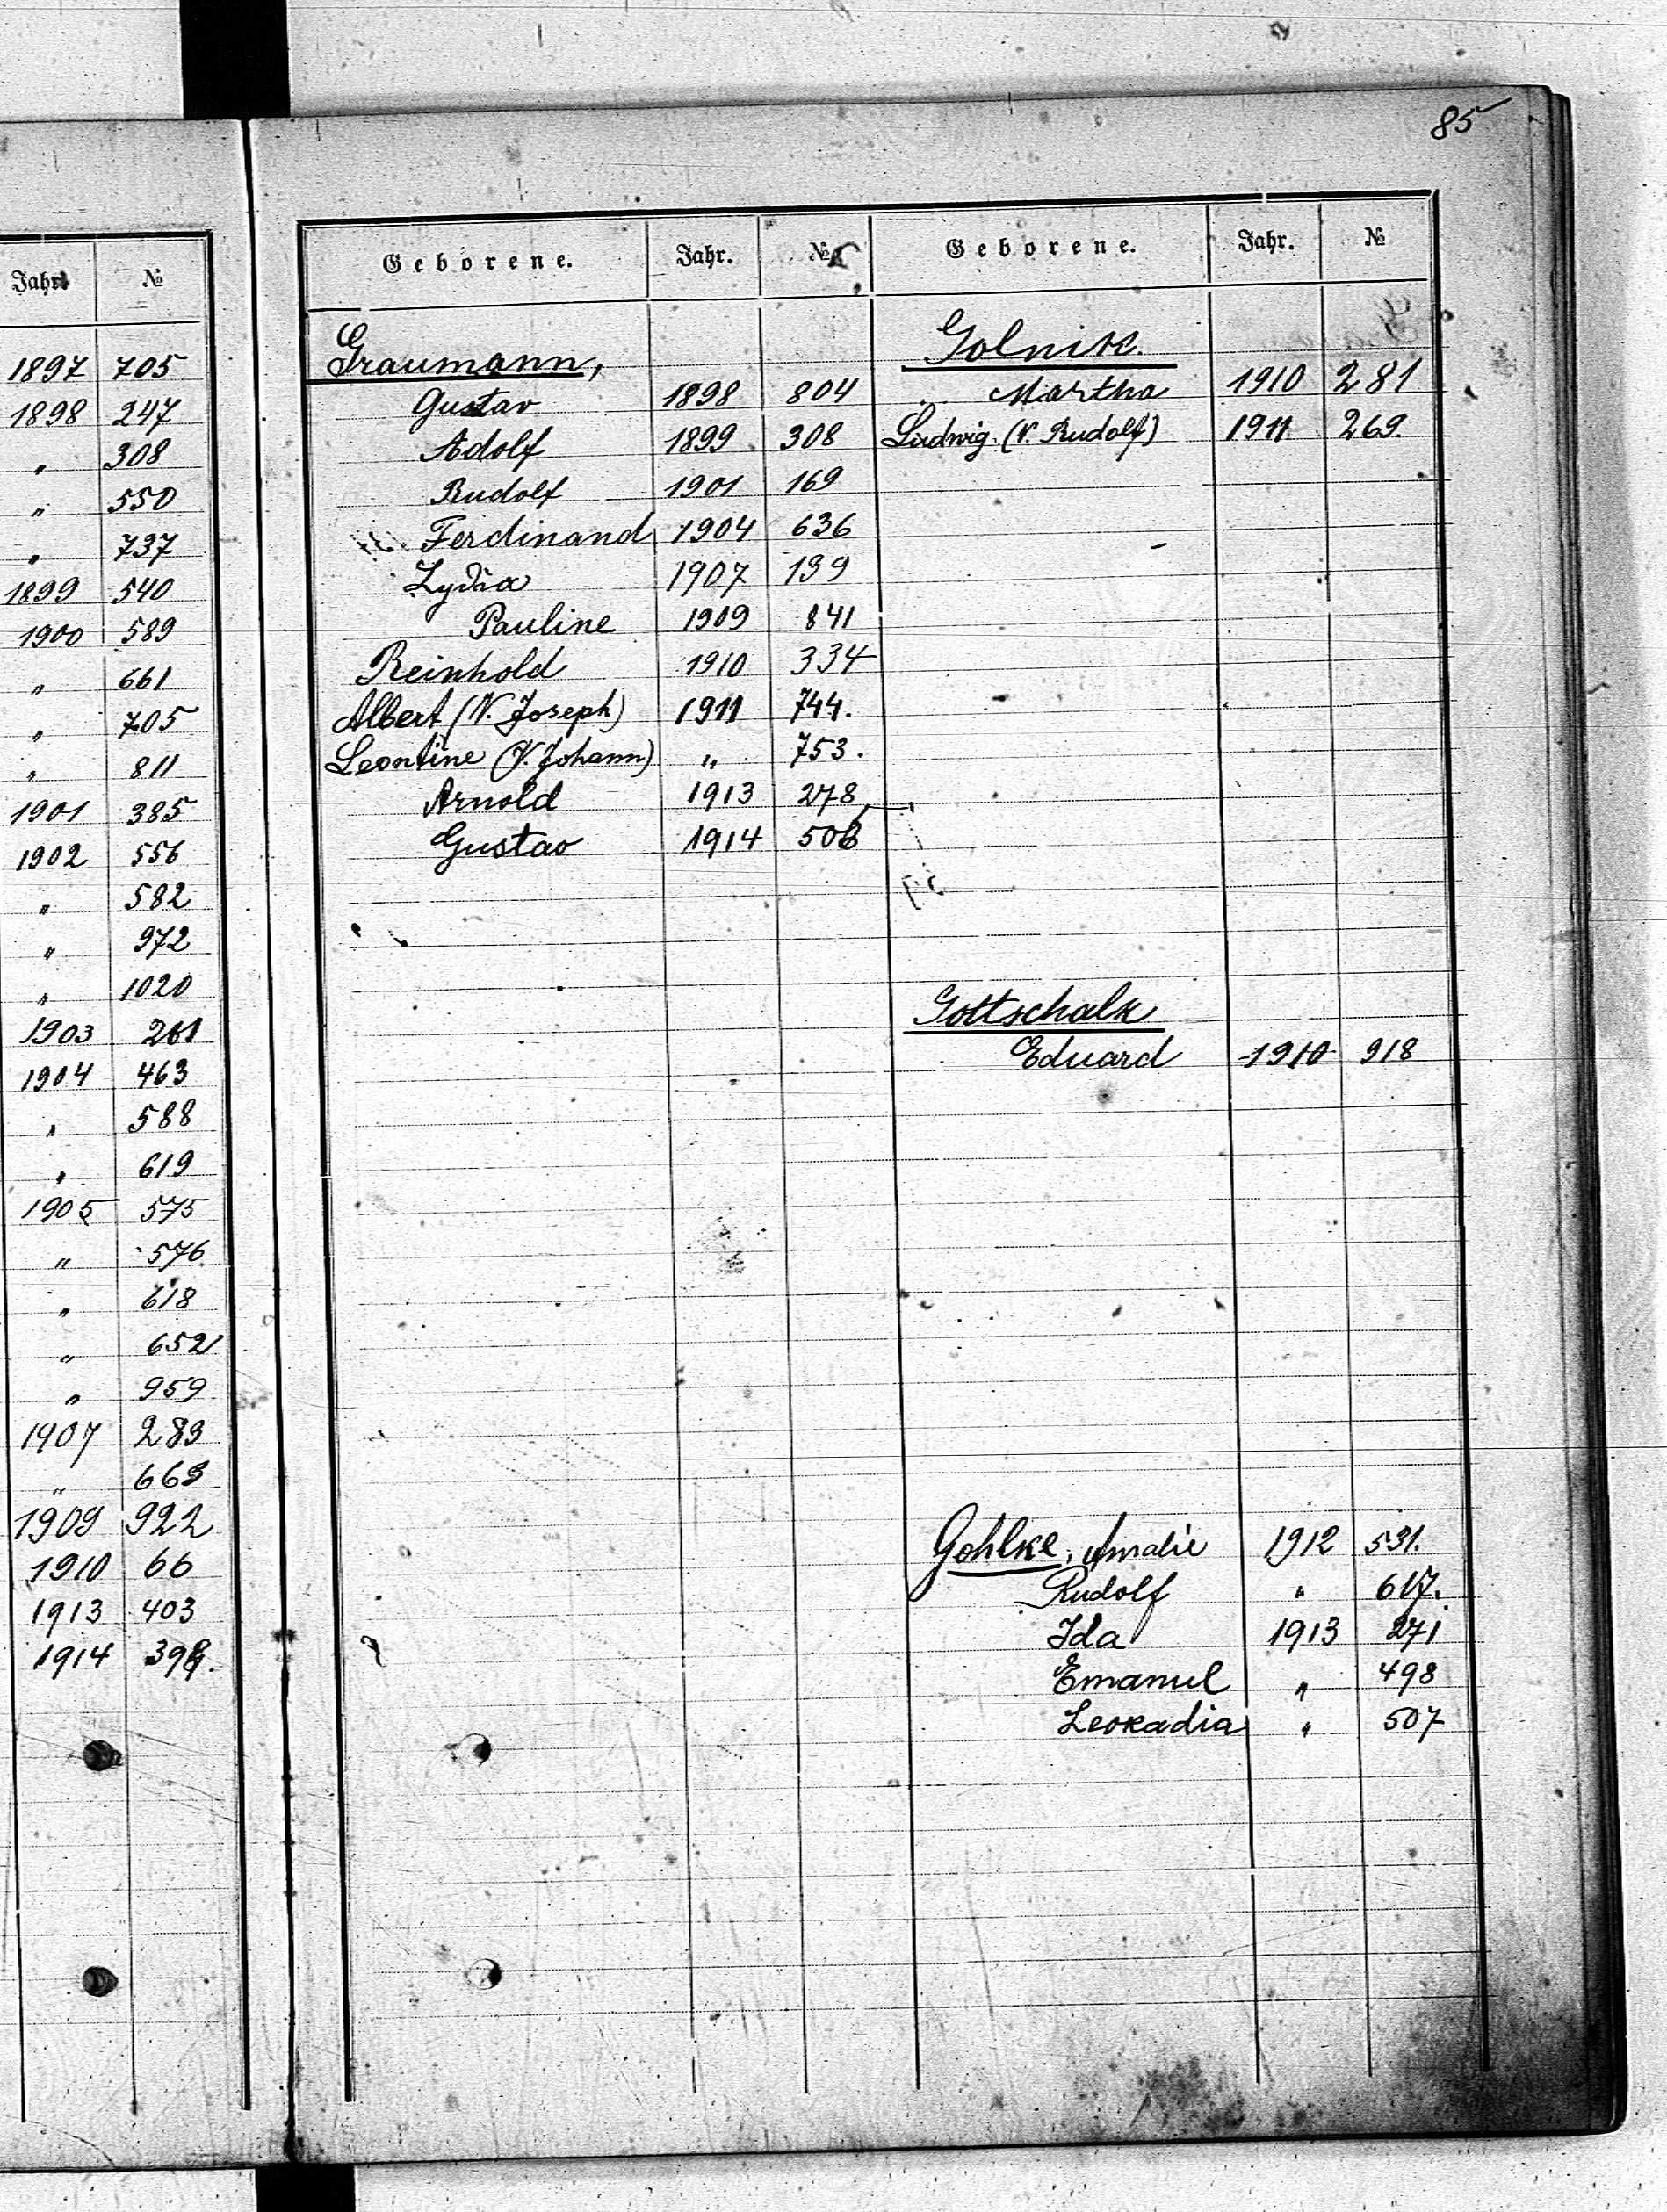 85
Jahr. №
1897 705
1898 247
„ 308
„ 550
„ 737
1899 540
1900 589
„ 661
„ 705
„ 811
1901 385
1902 556
„ 582
„ 972
„ 1020
1903 261
1904 463
„ 588
„ 619
1905 575
„ 576.
„ 618
„ 652
„ 959
1907 283
„ 663
1909 922
1910 66
1913 403
1914
Geborene. Jahr. №
Graumann,
Gustav 1898 804
Adolf 1899 308
Rudolf 1901 169
Ferdinand 1904 636
Lydia 1907 139
Pauline 1909 841
Reinhold 1910 334
Albert (V. Joseph) 1911 744.
Leontine (V. Johann) „ 753.
Arnold 1913 278
Gustav 1914
Geborene. Jahr. №
Golnik.
Martha 1910 281
Ludwig. (V. Rudolf) 1911 269.
Gottschalk
Eduard 1910 918
Gohlke, Amalie 1912 531.
Rudolf „ 617.
Ida 1913 271
Emanuel „ 498
Leokadia „ 507